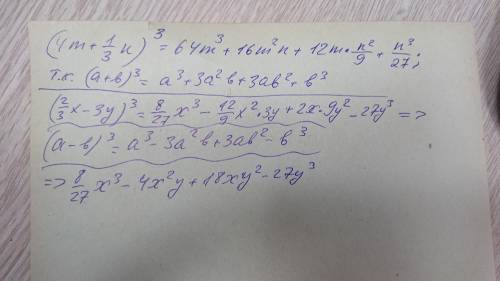 (4m+1/3n)³=64m³+16m²n+12m·n²/9+n³/27;
т.к. (a+в)³=a³+3a²в+3aв²+в³
(2/3x-3y)³=8/27x³-12/9x²·3y+2x·9y²-27y³=>
(a-в)³=a³-3a²в+3aв²-в³
=>8/27x³-4x²y+18xy²-27y³